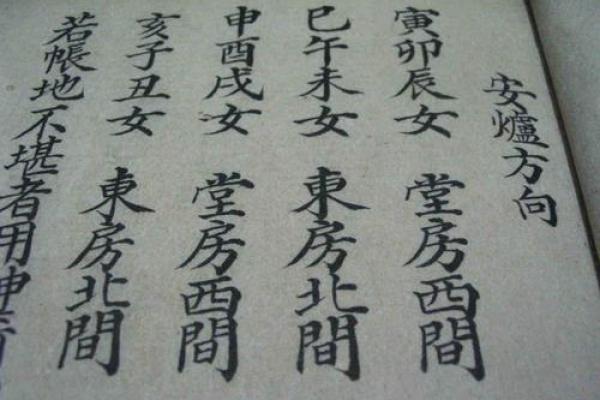 安爐方向
寅卯辰女 堂房西間
巳午未女 東房北間
申酉戌女 堂房西間
亥子丑女 東房北間
若帳地不堪者用神